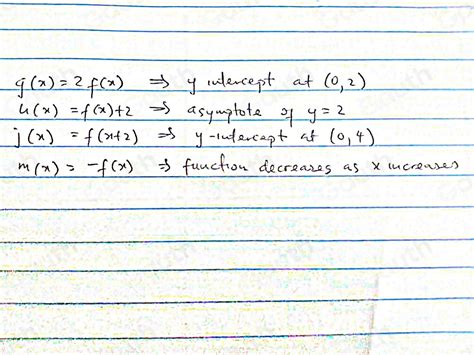 g(x) = 2 f(x) ⇒ y intercept at (0,2)
h(x) = f(x)+2 ⇒ asymptote of y = 2
j(x) = f(x+2) ⇒ y-intercept at (0,4)
m(x) = -f(x) ⇒ function decreases as x increases